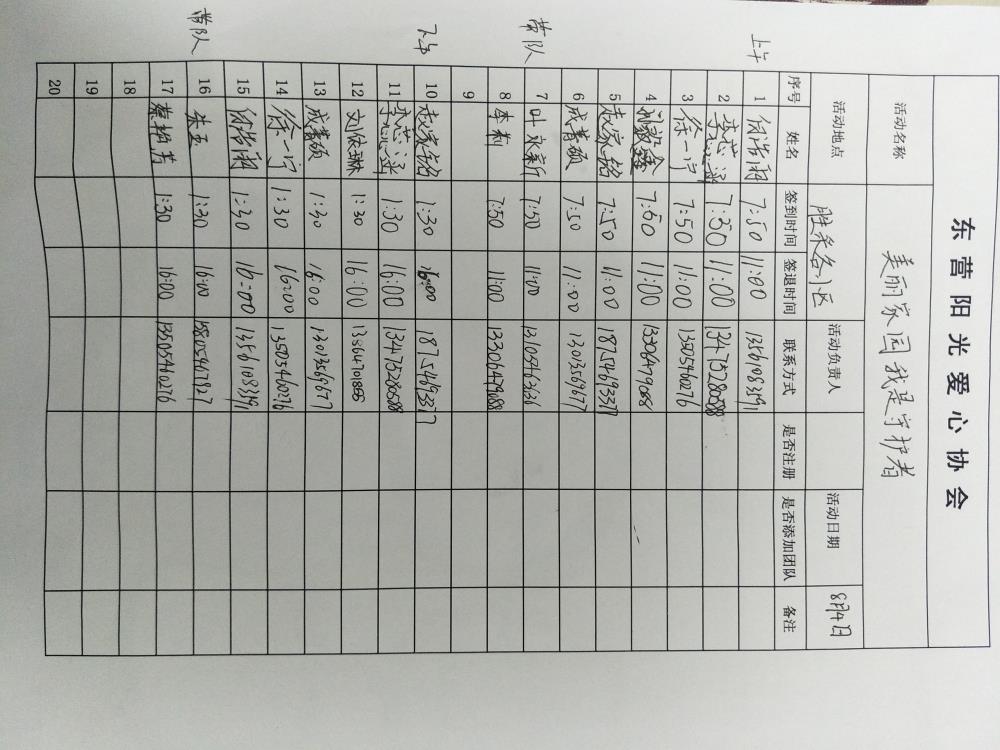 东营阳光爱心协会
活动名称 美丽家园我是守护者
活动地点 胜采各小区 活动负责人 活动日期 8月4日
序号 姓名 签到时间 签退时间 联系方式 是否注册 是否添加团队 备注
上午
1 7:50 11:00 13561083591
2 李芯涵 7:50 11:00 13475280588
3 徐一宁 7:50 11:00 13505460276
4 刘毅鑫 7:50 11:00 13306479088
5 赵家铭 7:50 11:00 18754693377
6 成蓍硕 7:50 11:00 13013569677
带队
7 叶永新 7:50 11:00
8 李莉 7:50 11:00 13306479088
9
下午
10 赵家铭 1:30 16:00 18754693377
11 李芯涵 1:30 16:00 13475280588
12 刘依琳 1:30 16:00
13 成蓍硕 1:30 16:00 13013569677
14 徐一宁 1:30 16:00 13505460276
15 1:30 16:00 13561083591
带队
16 朱玉 1:30 16:00 15805467927
17 1:30 16:00 13505460276
18
19
20